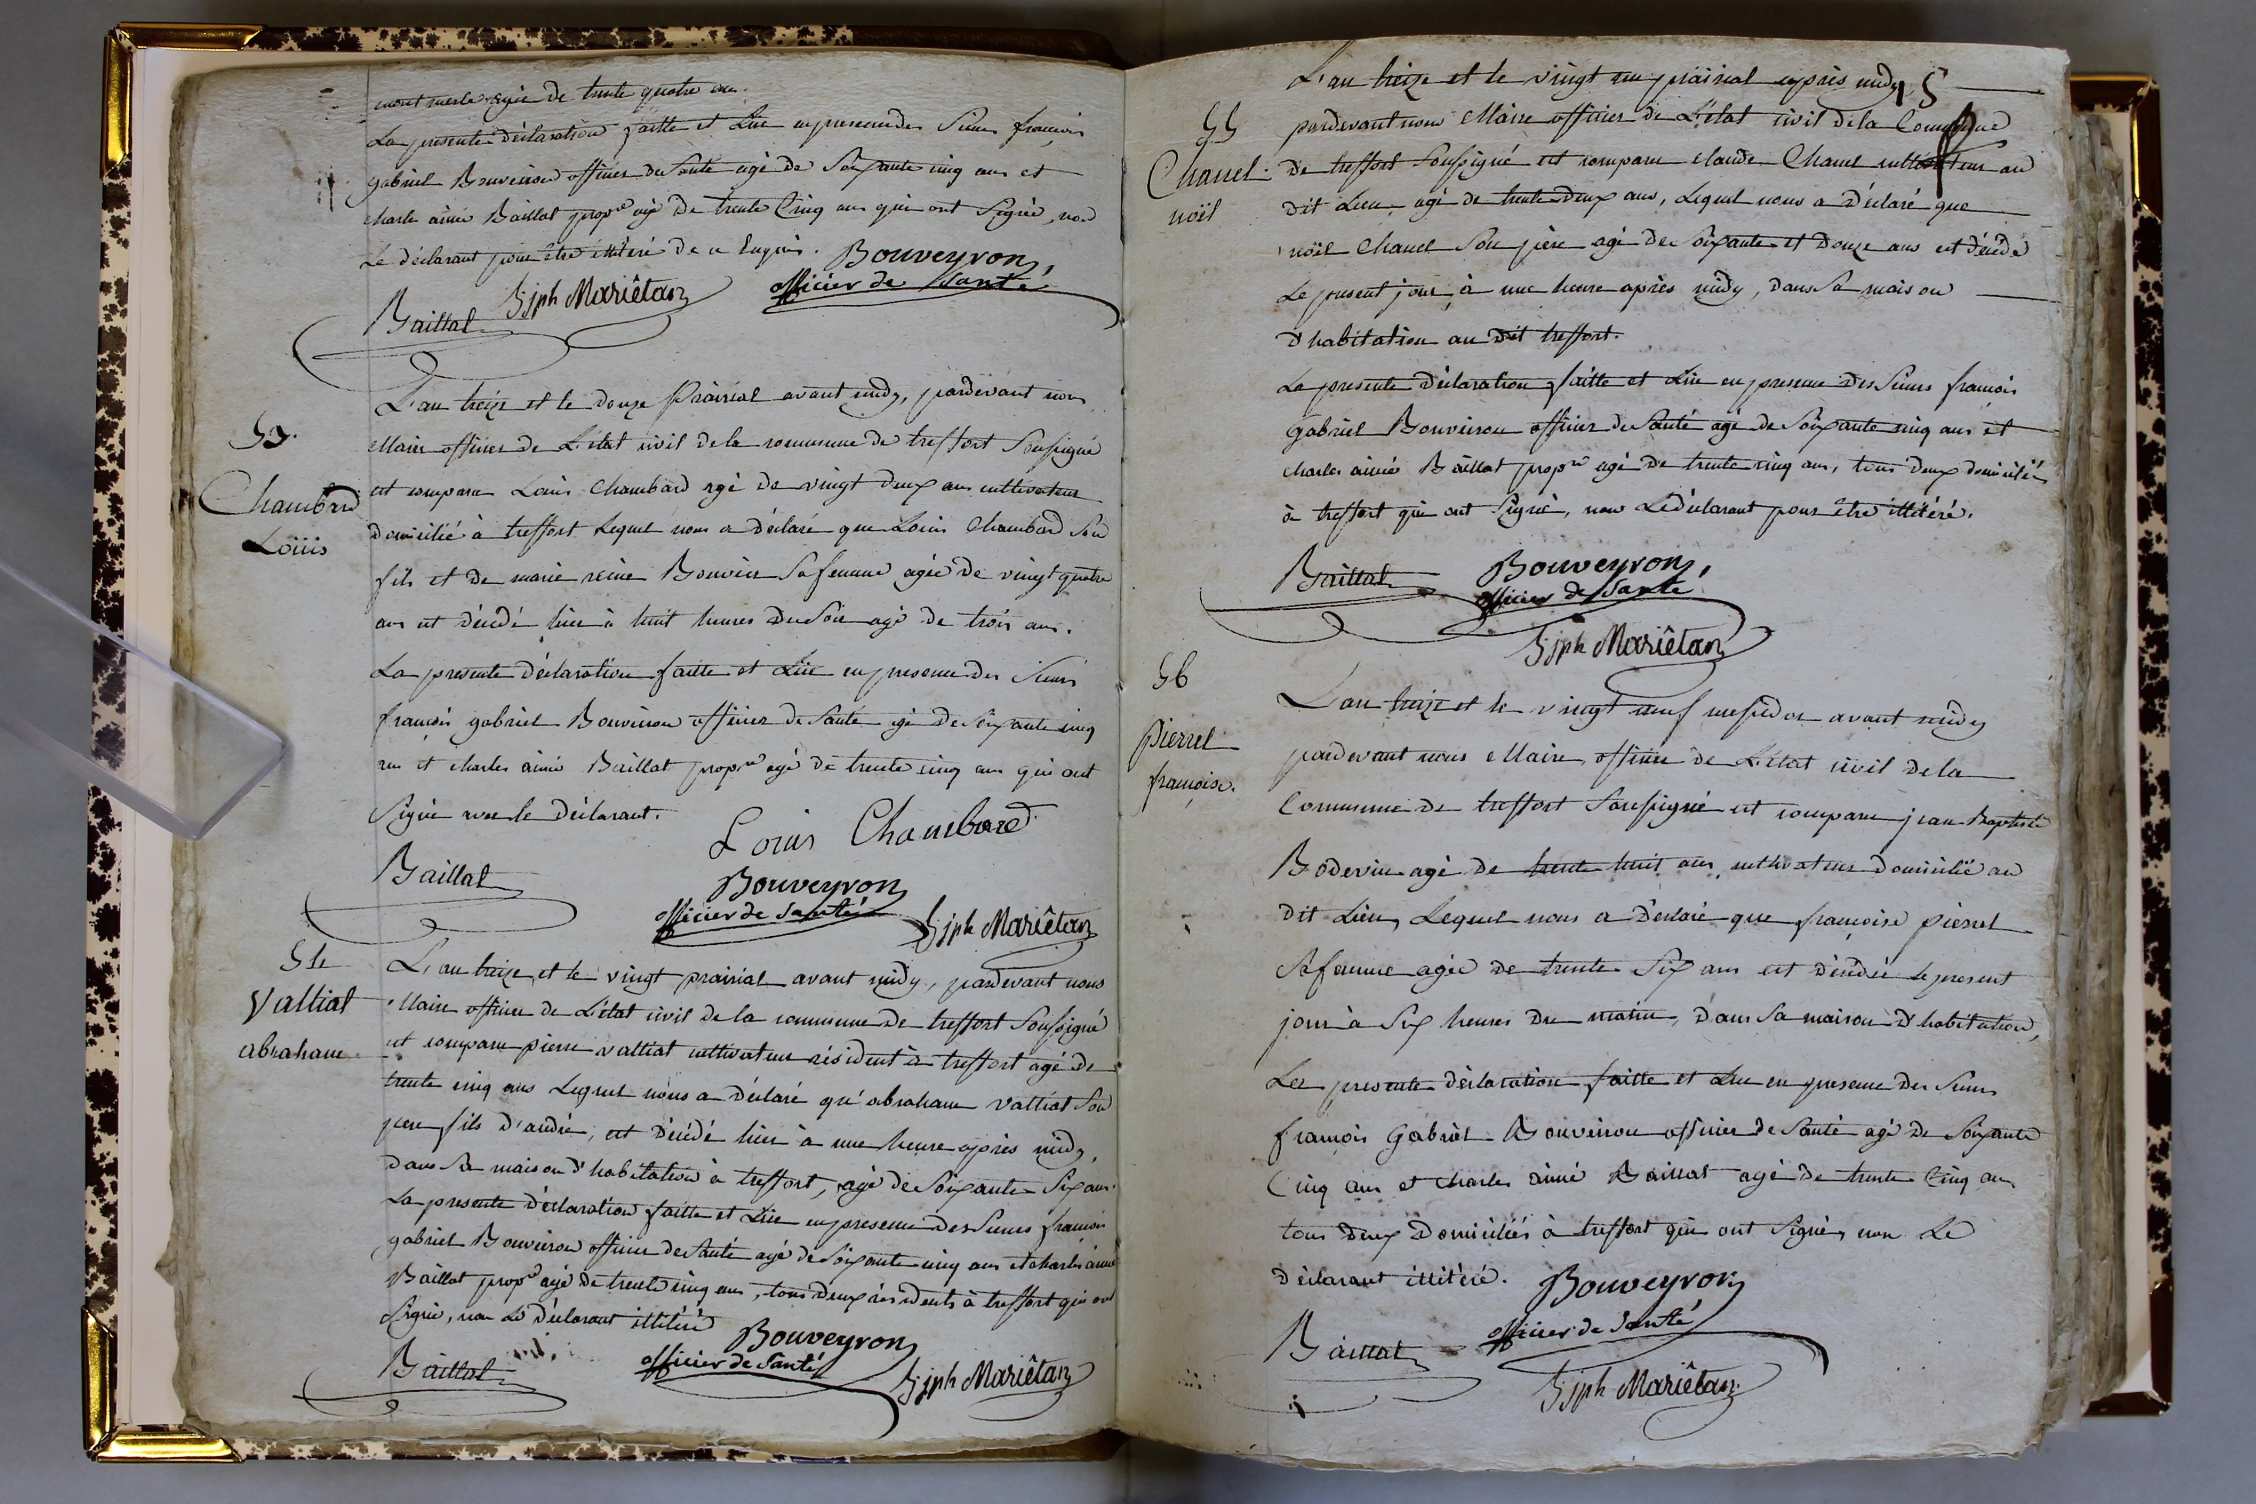 agée de trente quatre ans.
La presente déclaration faitte et Lüe en presence des Sieurs françois
gabriel Bouveirou officier de Santé agé de Soixante cinq ans et
charle aimé Baillat prop.re agé de trente Cinq ans qui ont Signé, non
Le déclarant pour être illitéré de ce Enquis. Bouveyron,
officier de Santé
Jph Mariêtan
Baillat
53.
Chambard
Loüis
L'an treize et le douze Prairial avant midy, pardevant nous
Maire officier de L'état civil de la commune de treffort Soussigné
est comparu Louis Chambard agé de vingt deux ans cultivateur
domicilié à treffort Lequel nous a déclaré que Louis Chambard Son
fils et de marie reine Bouvier Sa femme agée de vingt quatre
ans est décédé hier à huit heures du Soir agé de trois ans.
La presente déclaration faitte et Lüe en presence des Sieurs
françois gabriel Bouveirou officier de Santé agé de Soixante cinq
ans et charles aimé Baillat prop.re agé de trente cinq ans qui ont
Signé avec le déclarant.
Louis Chambard
Baillat
Bouveyron
officier de Santé
Jph Mariêtan
54
Valliat
abraham
L'an treize et le vingt prairial avant midy, pardevant nous
Maire officier de L'état civil de la commune de treffort Soussigné
est comparu pierre valliat cultivateur résident à treffort agé de
trente cinq ans Lequel nous a déclaré qu'abraham valliat Son
pere fils d'andré, est décédé hier à une heure après midy,
dans Sa maison d'habitation à treffort, agé de Soixante Six ans.
La presente déclaration faitte et Lüe en presence des Sieurs françois
gabriel Bouveirou officier de Santé agé de Soixante cinq ans et charles aimé
Baillat prop.re agé de trente cinq ans, tous deux résidents à treffort qui ont
Signé, non Le déclarant illitéré
Bouveyron
officier de Santé
Baillat
Jph Mariêtan
15
55
Chanel
noël
L'an treize et le vingt un prairial après midy
pardevant nous Maire officier de L'état civil de la Commune
de treffort Soussigné est comparu claude Chanel cultivateur au
dit Lieu, agé de trente deux ans, Lequel nous a déclaré que
noël Chanel Son père agé de Soixante et douze ans est décédé
Le present jour, à une heure après midy, dans Sa maison
d'habitation au dit treffort.
La presente déclaration faitte et Lüe en presence des Sieurs françois
gabriel Bouveirou officier de Santé agé de Soixante cinq ans et
charles aimé Baillat prop.re agé de trente cinq ans, tous deux domiciliés
à treffort qui ont Signé, non Le déclarant pour être illitéré.
Baillat
Bouveyron,
officier de Santé
Jph Mariêtan
56
pierrel
françoise.
L'an treize et le vingt neuf messidor avant midy
pardevant nous Maire officier de L'état civil de la
Commune de treffort Soussigné est comparu jean Baptiste
Bodevin agé de trente huit ans, cultivateur domicilié au
dit Lieu, Lequel nous a déclaré que françoise pierrel
Sa femme agée de trente Six ans est décédée le present
jour à Six heures du matin, dans Sa maison d'habitation,
La presente déclaration faitte et Lue en presence des Sieurs
françois Gabriel Bouveirou officier de Santé agé de Soixante
Cinq ans et Charles aimé Baillat agé de trente Cinq ans
tous deux Domiciliés à treffort qui ont Signé, non Le
déclarant illitéré.
Bouveyron
officier de Santé
Baillat
Jph Mariêtan